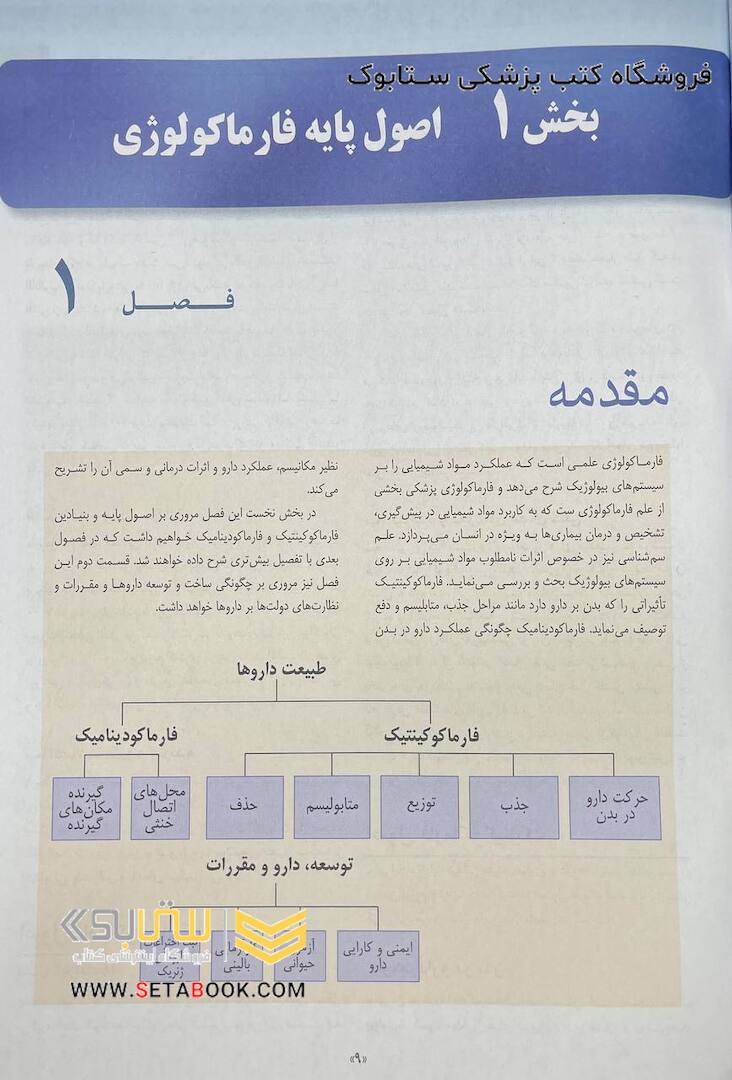 فروشگاه کتب پزشکی ستابوک
بخش ۱ اصول پایه فارماکولوژی
فصل ۱
مقدمه
فارماکولوژی علمی است که عملکرد مواد شیمیایی را بر
سیستم‌های بیولوژیک شرح می‌دهد و فارماکولوژی پزشکی بخشی
از علم فارماکولوژی ست که به کاربرد مواد شیمیایی در پیش‌گیری،
تشخیص و درمان بیماری‌ها به ویژه در انسان می‌پردازد. علم
سم‌شناسی نیز در خصوص اثرات نامطلوب مواد شیمیایی بر روی
سیستم‌های بیولوژیک بحث و بررسی می‌نماید. فارماکوکینتیک
تأثیراتی را که بدن بر دارو دارد مانند مراحل جذب، متابلیسم و دفع
توصیف می‌نماید. فارماکودینامیک چگونگی عملکرد دارو در بدن
نظیر مکانیسم، عملکرد دارو و اثرات درمانی و سمی آن را تشریح
می‌کند.
در بخش نخست این فصل مروری بر اصول پایه و بنیادین
فارماکوکینتیک و فارماکودینامیک خواهیم داشت که در فصول
بعدی با تفصیل بیش‌تری شرح داده خواهند شد. قسمت دوم این
فصل نیز مروری بر چگونگی ساخت و توسعه داروها و مقررات و
نظارت‌های دولت‌ها بر داروها خواهد داشت.
طبیعت داروها
فارماکوکینتیک
فارماکودینامیک
حرکت دارو
در بدن
جذب
توزیع
متابولیسم
حذف
محل‌های
اتصال
خنثی
گیرنده
مکان‌های
گیرنده
توسعه، دارو و مقررات
ایمنی و کارایی
دارو
حیوانی
بالینی
ثبت اختراعات
ژنریک
ستابوک
فروشگاه اینترنتی کتاب
WWW.SETABOOK.COM
«۹»